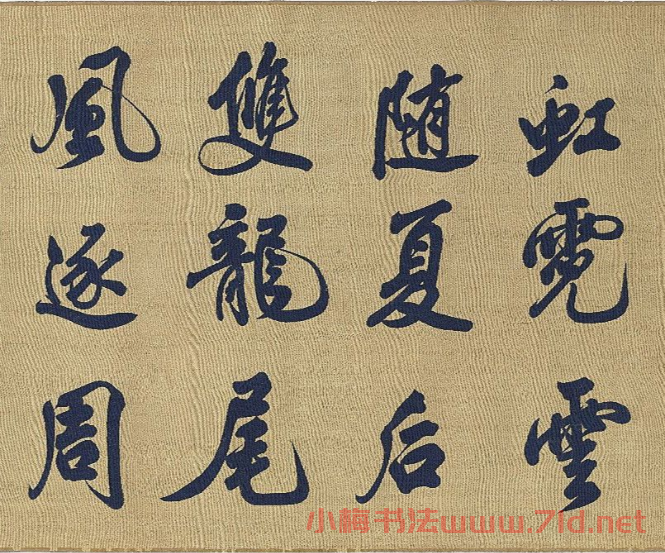 虹霓雲
随夏后
雙龍尾
風逐周
小梅书法www.7ld.net